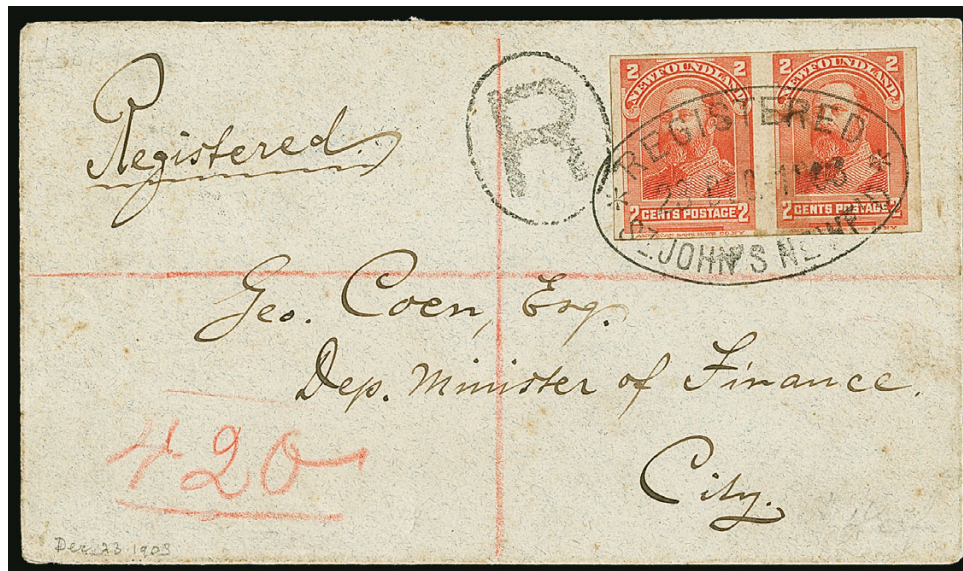 Registered
R
2 NEWFOUNDLAND 2
2 CENTS POSTAGE 2
2 NEWFOUNDLAND 2
2 CENTS POSTAGE 2
* REGISTERED *
23 DEC 1903
ST. JOHN'S NEWF'D
Geo. Coen, Esq.
Dep. Minister of Finance.
City.
420
Dec 23 1903